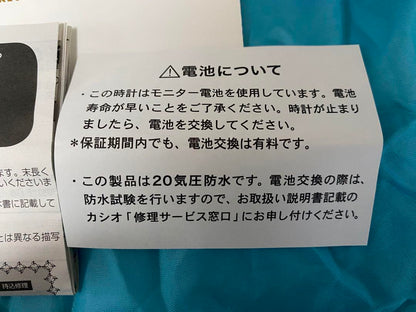 ⚠電池について
・この時計はモニター電池を使用しています。電池
寿命が早いことをご了承ください。時計が止まり
ましたら、電池を交換してください。
*保証期間内でも、電池交換は有料です。
・この製品は20気圧防水です。電池交換の際は、
防水試験を行いますので、お取扱い説明書記載の
カシオ「修理サービス窓口」にお申し付けください。
ます。末長く
いくださいま
書に記載して
とは異なる描写
持込修理